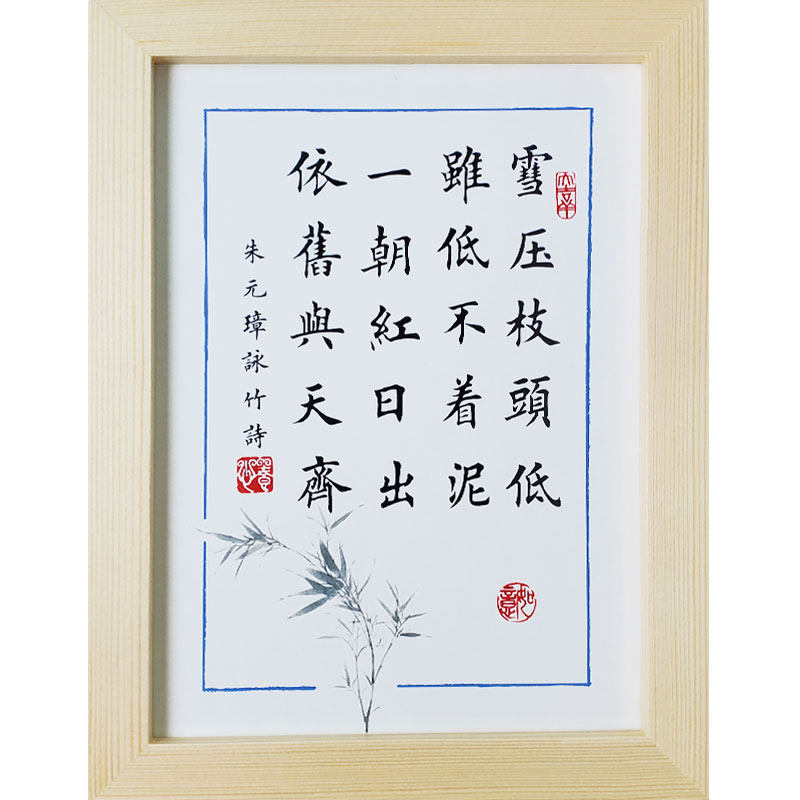 雪压枝頭低
雖低不着泥
一朝紅日出
依舊與天齊
朱元璋詠竹詩
如意